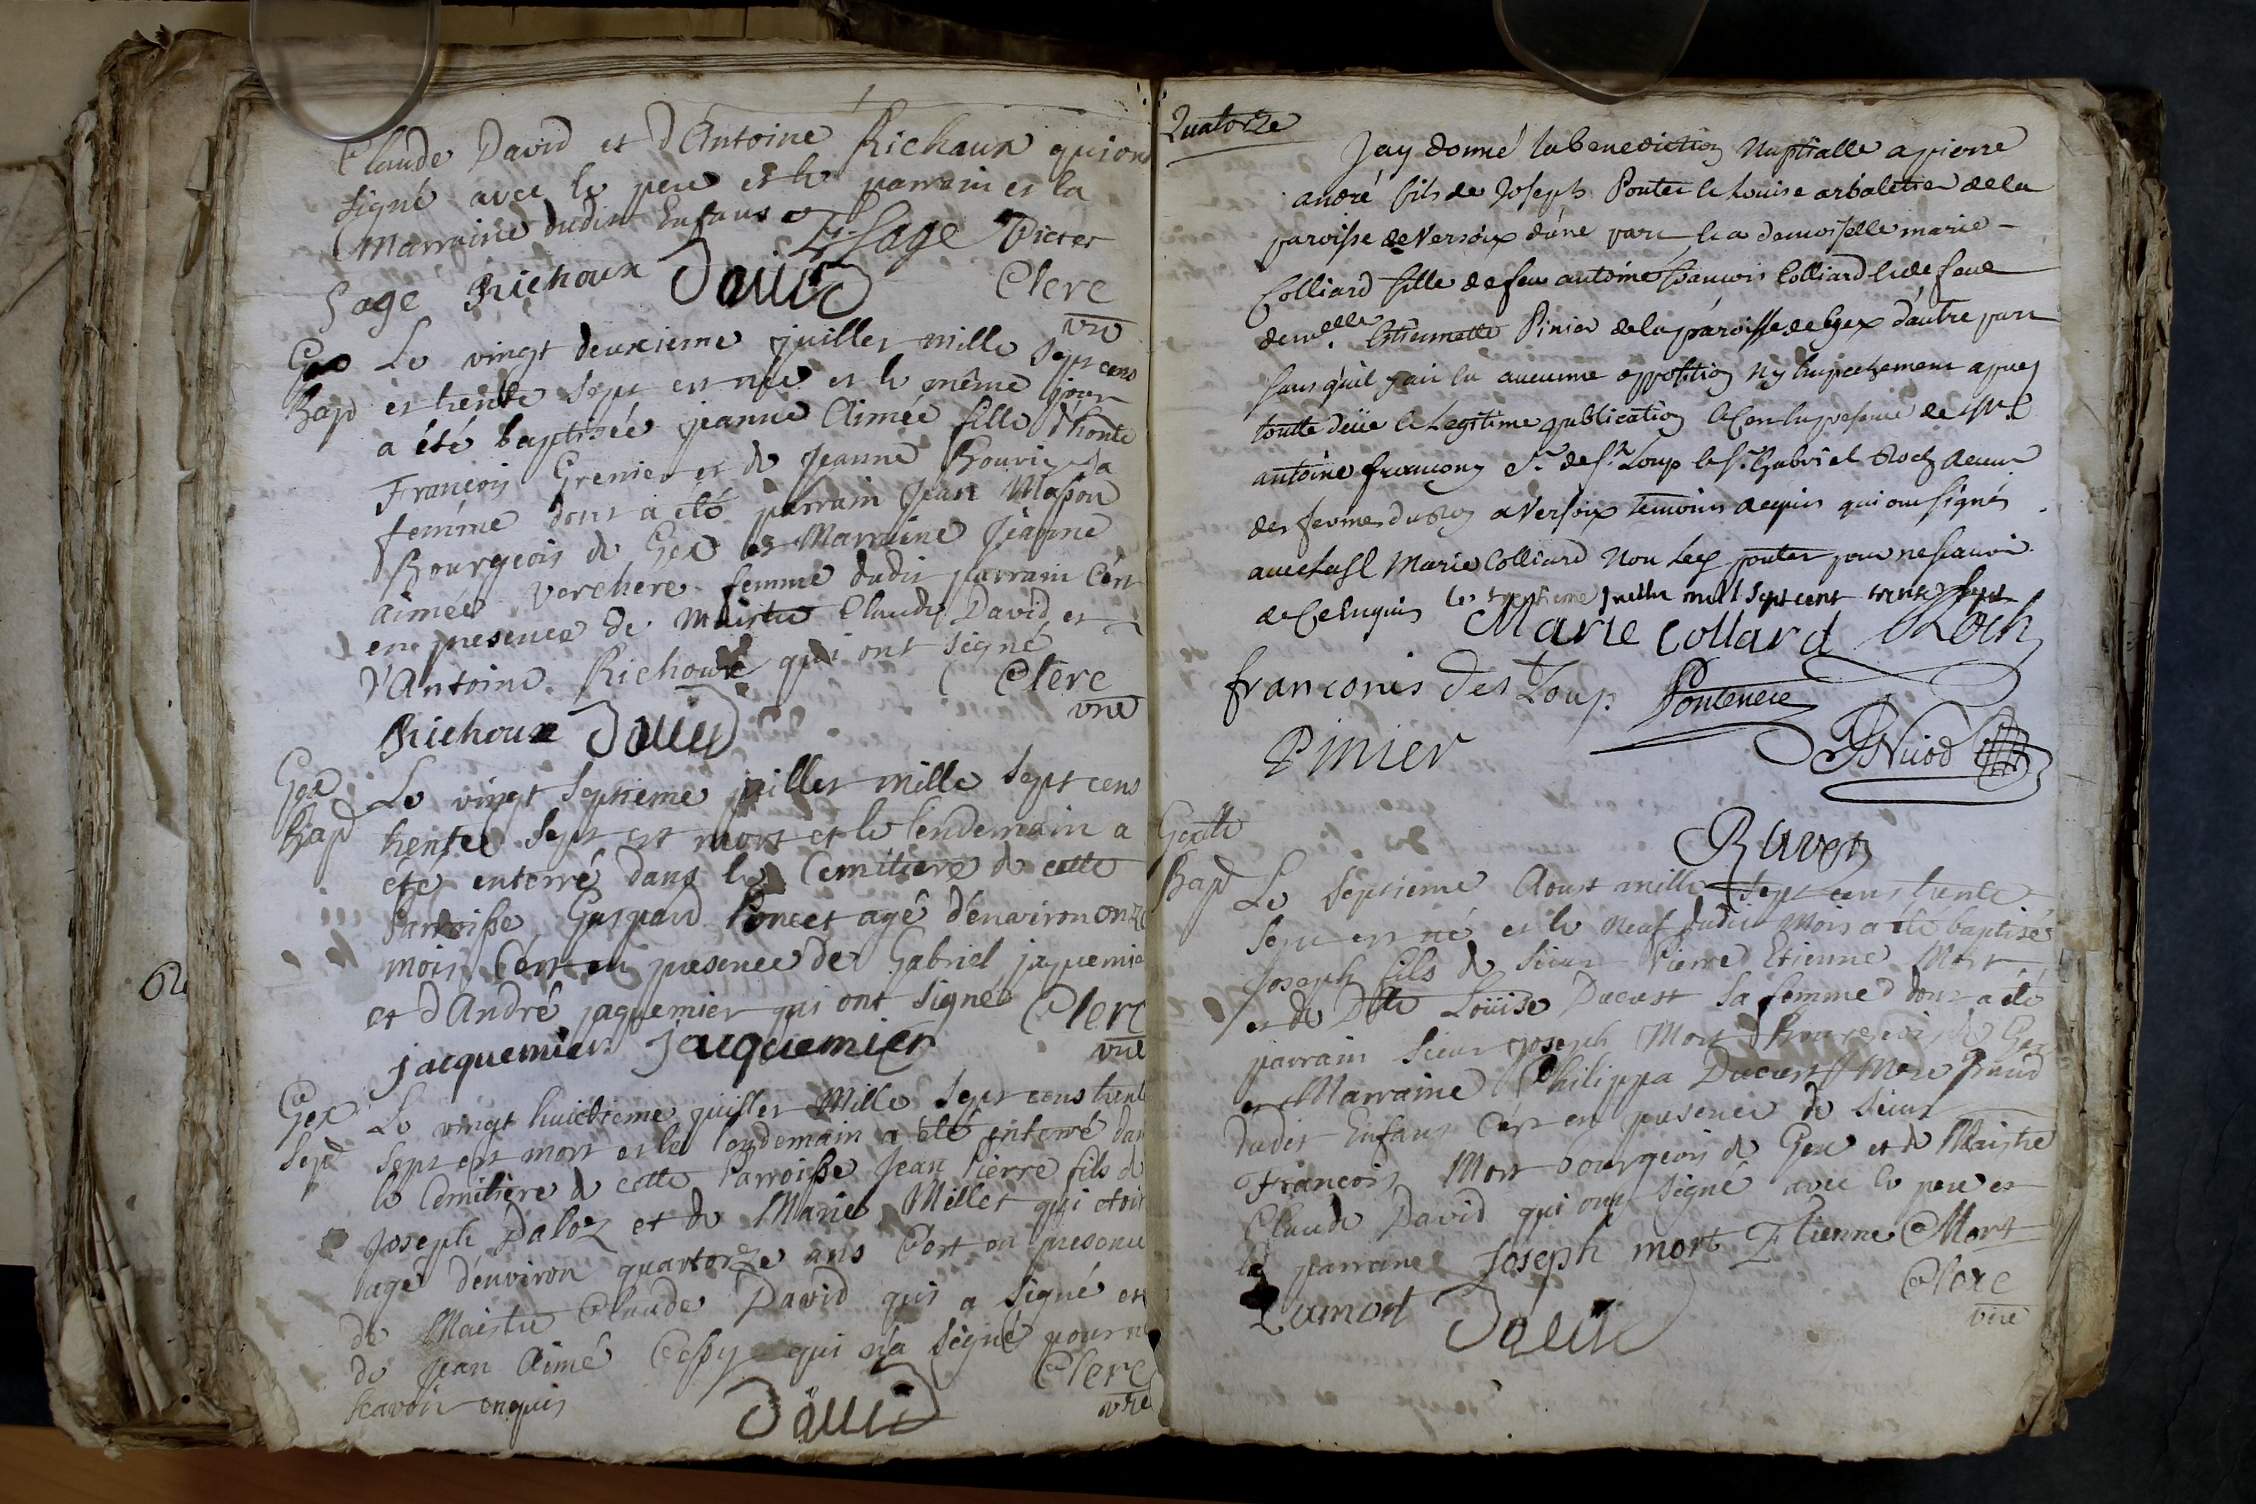 Claude David et d'Antoine Richaux qui ont
signé avec le pere et le parrain et la
Marraine dudit Enfant Lesage Dictet
Sage Richoux David Clerc
vre
Gex Le vingt deuxieme juillet mille sept cens
Bap et trente sept est née et le même jour
a été baptisée jeanne Aimée fille d'honte
François Grenier et de Jeanne Bouvier sa
femme dont a été parrain Jean Masson
Bourgeois de Gex et Marraine Jeanne
aimée Verchere femme dudit parrain C'est
en presence de Maistre Claude David et
d'Antoine Richoux qui ont signé
Clerc
vre
Richoux David
Gex Le vingt septieme juillet mille sept cens
Bap trente sept est mort et le lendemain a
été enterré dans le Cemitiere de cette
Parroisse Gaspard Poncet agé d'environ onze
mois C'est en presence de Gabriel jaquemier
et d'André jaquemier qui ont signé Clerc
vre
jacquemier jacquemier
Gex Le vingt huictieme juillet Mille sept cens trente
Sep sept est mort et le lendemain a été enterré dans
le Cemitiere de cette Parroisse Jean Pierre fils de
Joseph Daloz et de Marie Millet qui etoit
agé d'environ quatorze ans C'est en presence
de Maistre Claude David qui a signé et
de Jean Aimé Cessy qui n'a signé pour ne
scavoir enquis Clerc
vre
David
Quatorze
Jay donné la benediction Nuptialle a pierre
andré fils de Joseph Ponter et Louise arbaletrier de la
paroisse de Versoix d'une part et a demoiselle marie
Colliard fille de feu antoine françois Colliard et de feue
demelle Estiennette Pinier de la paroisse de Gex d'autre part
sans quil y ait eu aucunne opposition ny Empechement apres
toutte deüe et Legitime publication et C'en la presence de Mr
antoine françonis Sr de St Loup et Sr Gabriel Roch receveur
des fermes du Roy a Versoix temoins requis qui ont signés
avec lad Marie Colliard Non led ponter pour ne scavoir
de Ce Enquis le trentieme juillet mil sept cent trente sept
Marie collard Roch
franconis des St Loup Ponteneie
Pinier JNicod
Ravet
Gex
Bap Le septieme Aoust mille sept cens trente
sept est né et le neuf dudit Mois a été baptisé
Joseph fils de Sieur Pierre Etienne Mort
et de Dlle Loüise Ducrest sa femme dont a été
parrain Sieur joseph Mort Bourgeois de Gex
et Marraine Philippa Ducrest Mere Grand
dudit Enfant C'est en presence de Sieur
François Mort bourgeois de Gex et de Maistre
Claude David qui ont signé avec le pere et
le parrain Joseph mort Etienne Mort
Lamort David Clerc
vre